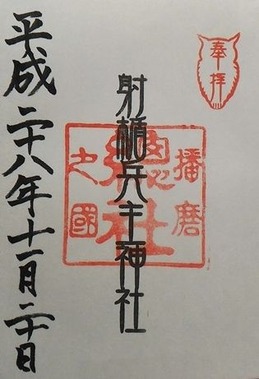 奉拝
播磨
総社
之國
射楯兵主神社
平成二十八年十一月二十日